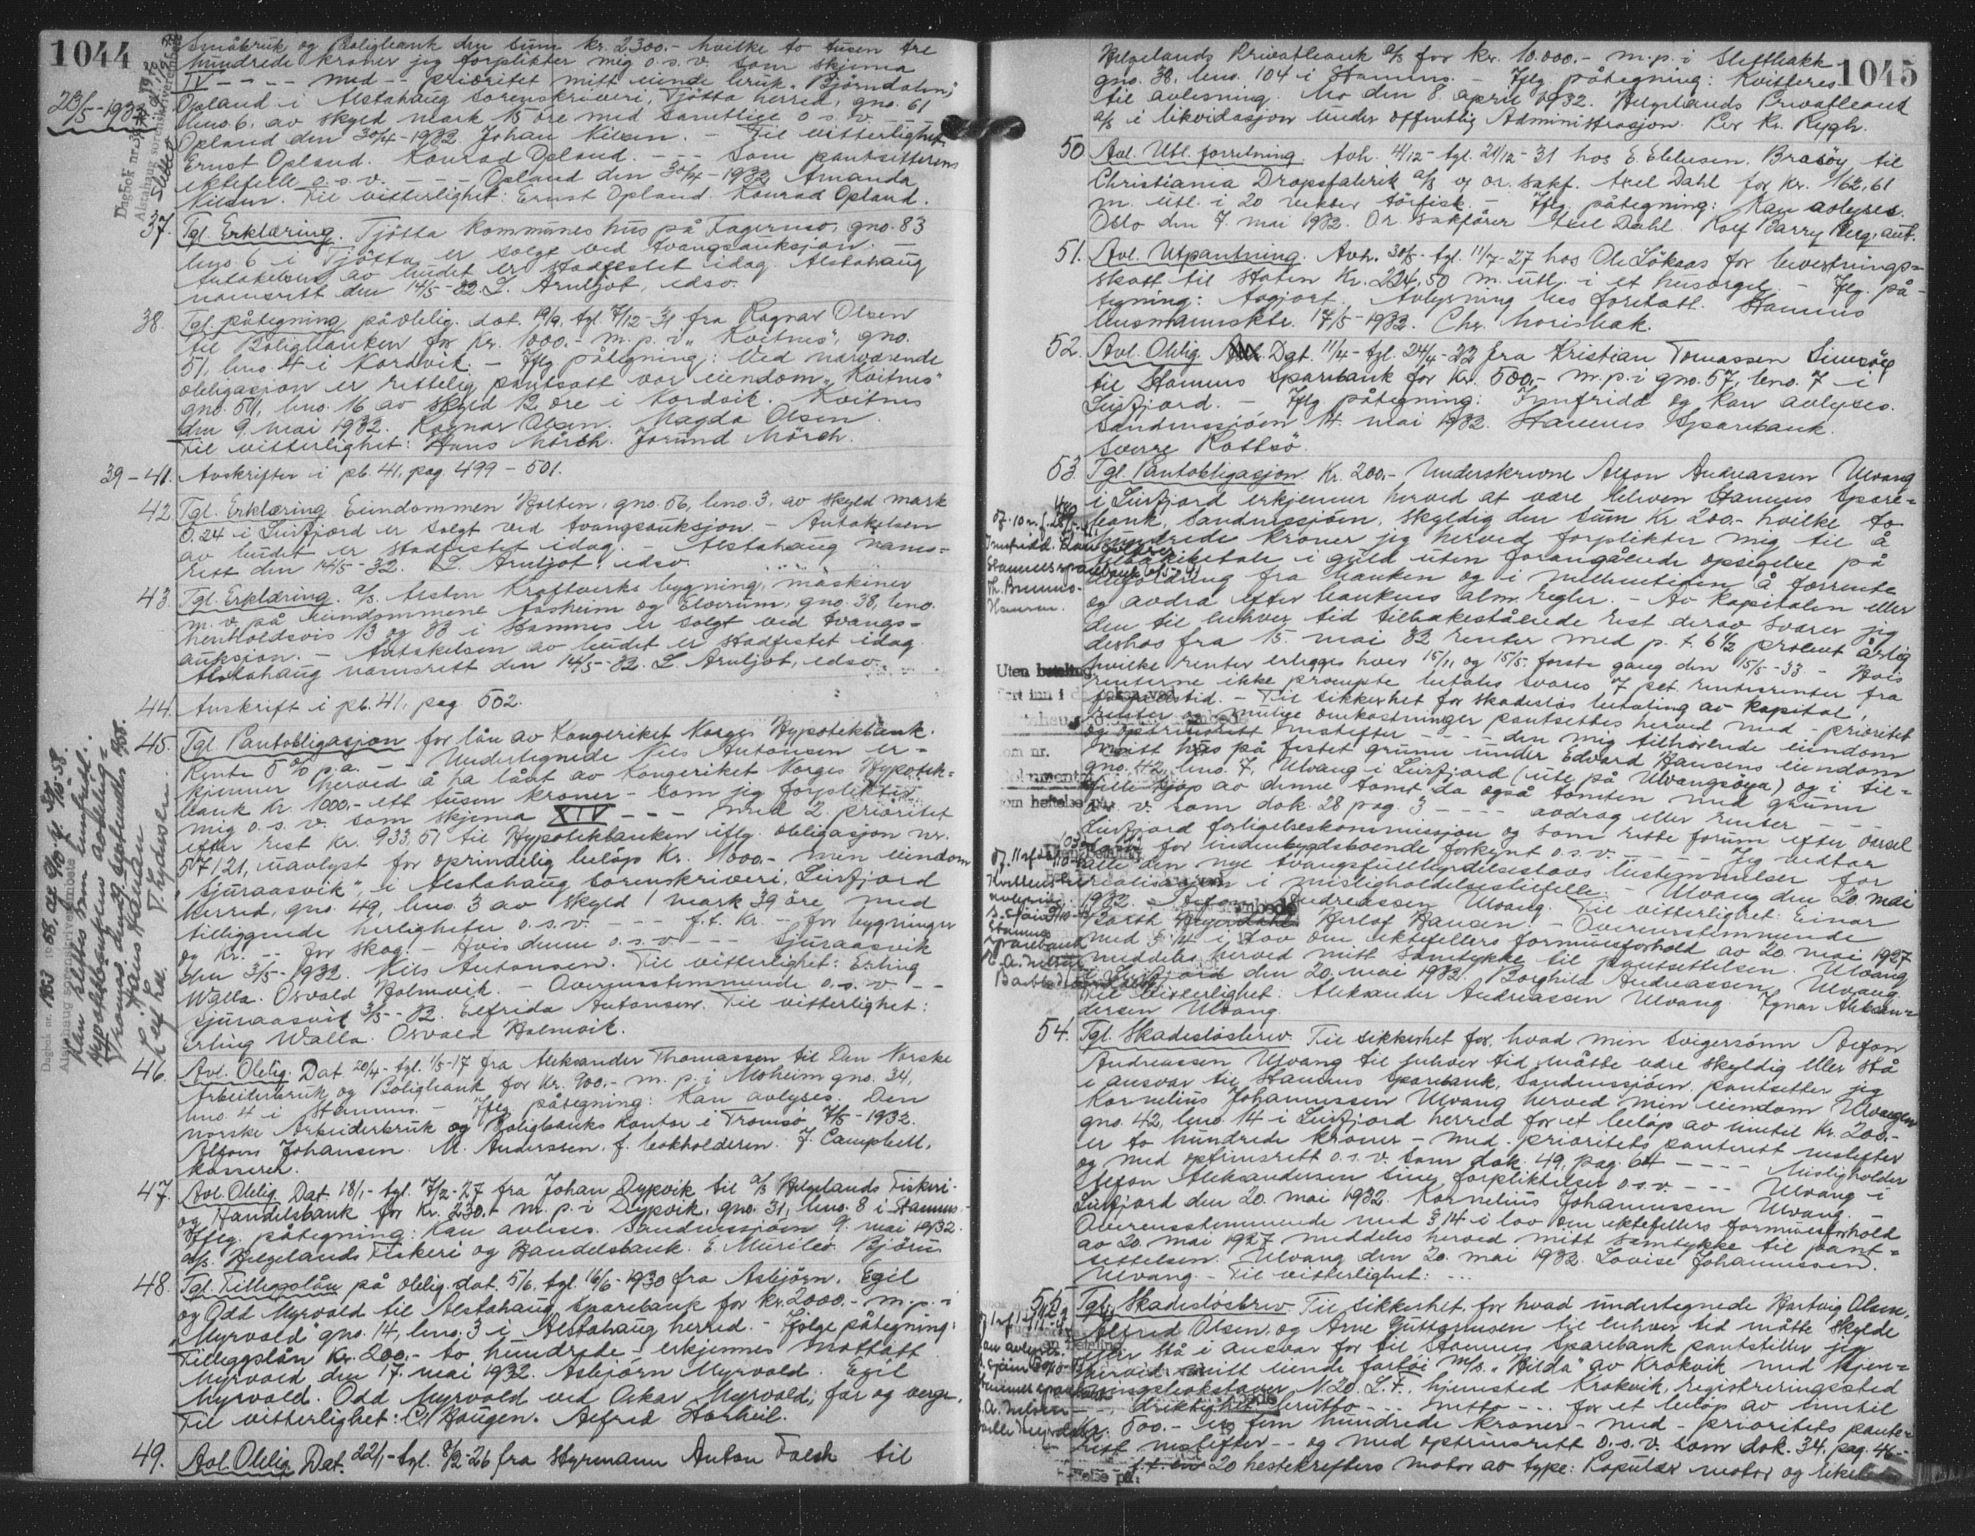 1044
Småbruk og Boligbank den sum kr. 2300.- hvilke to tusen tre
hundrede kroner jeg forplikter mig o.s.v. som skjema
IV - - - - med - prioritet mitt eiende bruk "Björndalen",
23/5-1932. Opland i Alstahaug sorenskriveri, Tjötta herred, gno. 61
bno. 6, av skyld mark 15 öre med samtlige o.s.v. - -
Opland den 30/4-1932 Johan Nilsen. - Til vitterlighet
Ernst Opland. Konrad Opland. - - - Som pantsetterens
ektefelle o.s.v. - - - Opland den 30/4-1932 Amanda
Nilsen. Til vitterlighet: Ernst Opland. Konrad Opland.
37. Tgl. Erklæring. Tjötta kommunes hus på Fagernes, gno. 83
bno. 6 i Tjötta er solgt ved tvangsauksjon. -
Antakelsen av budet er stadfestet idag. Alstahaug
namsrett den 14/5-32. L. Arntljot, edsv.
38. Tgl. påtegning på oblig. dat. 19/9, tgl. 7/12-31 fra Ragnar Olsen
til Boligbanken for kr. 1000.- m.p. i "Kvitnes", gno.
51, bno. 4 i Nordvik. - Iflg påtegning: Ved nærværende
obligasjon er rettelig pantsatt vor eiendom "Kvitnes"
gno. 51, bno. 16 av skyld 12 öre i Nordvik. Kvitnes
den 9. mai 1932. Ragnar Olsen. Magda Olsen.
Til vitterlighet: Hans Mörch. Jorund Mörch.
39-41. Avskrifter i pb. 41, pag. 499-501.
42. Tgl. Erklæring. Eiendommen Bolten, gno. 56, bno. 3, av skyld mark
0.24 i Leirfjord er solgt ved tvangsauksjon. - Antakelsen
av budet er stadfestet idag. - Alstahaug nams-
rett den 14/5-32. L. Arntljot, edsv.
43. Tgl. Erklæring. A/S Alsten Kraftverks bygning, maskiner
m.v. på eiendommene Aasheim og Elverum, gno. 38, bno.
henholdsvis 13 og 33 i Stamnes er solgt ved tvangs-
auksjon. - Antakelsen av budet er stadfestet idag
Alstahaug namsrett den 14/5-32. L. Arntljot, edsv.
44. Avskrift i pb. 41, pag 502.
45. Tgl. Pantobligasjon for lån av Kongeriket Norges Hypotekbank.
Rente 5% p.a. - - Undertegnede Nils Antonsen er-
kjenner herved å ha lånt av Kongeriket Norges Hypotek-
bank kr. 1000.- ett tusen kroner - som jeg forplikter
mig o.s.v. som skjema XIV - - - med 2 prioritet
efter rest kr. 933,51 til Hypotekbanken iflg. obligasjon nr.
57121, uavlyst for oprindelig belöp kr. 1000.- men eiendom
"Sjuraasvik", i Alstahaug sorenskriveri, Leirfjord
herred, gno. 49, bno. 3 av skyld 1 mark 39 öre, med
tilliggende herligheter o.s.v. - - - f.t. kr. - for bygninger
og kr. - for skog. - Hvis denne o.s.v. - - - Sjuraasvik
den 3/5-1932. Nils Antonsen. Til vitterlighet: Erling
Walla. Osvald Holmvik. - Overensstemmende o.s.v. - -
Sjuraasvik 3/5-32. Elfrida Antonsen. Til vitterlighet:
Erling Walla. Osvald Holmvik.
46. Avl. Oblig. Dat. 20/4-tgl. 1/5-17 fra Aleksander Thomassen til Den Norske
Arbeiderbruk og Boligbank for kr. 900.- m.p. i Moheim gno. 34,
bno. 4 i Stamnes. - Iflg påtegning: Kan avlyses. Den
norske Arbeiderbruk og Boligbanks kontor i Tromsö 7/5-1932.
Alfons Johansen. M. Anderssen, f. bokholderen. J. Campbell,
kasserer.
47. Avl. Oblig. Dat. 18/1-tgl. 7/2-27 fra Johan Dypvik til A/S Helgelands Fiskeri-
og Handelsbank for kr. 230.- m.p. i Dypvik, gno. 31, bno. 8 i Stamnes.-
Iflg. påtegning: Kan avlyses. Sandnessjöen 9. mai 1932.
A/S Helgelands Fiskeri og Handelsbank. E. Björn
48. Tgl. Tilleggslån på oblig. dat. 5/6, tgl. 16/6-1930 fra Asbjörn, Egil
og Odd Myrvold til Alstahaug sparebank for kr. 2000.- m.p. i
"Myrvold" gno. 14, bno. 3 i Alstahaug herred. - Ifölge påtegning:
Tilleggslån kr. 200.- to hundrede - erkjennes mottatt.
Myrvold den 17. mai 1932. Asbjörn Myrvold. Egil
Myrvold. Odd Myrvold ved Oskar Myrvold, far og verge.
Til vitterlighet: C. Haugen. Alfred
49. Avl. Oblig. Dat. 22/1-tgl. 8/2-26 fra Styrmann Anton Falch til
Kan slettes som innfridd.
Hypotekbankens avdeling
Tromsö, den
Dagbok nr. 1863
1045
Helgelands Privatbank A/S for kr. 10.000.- m.p. i Slettbakk
gno. 38, bno. 104 i Stamnes. - Iflg. påtegning: Kvitteres
til avlesning. Mo den 8. april 1932. Helgelands Privatbank
A/S i likvidasjon under offentlig Administrasjon. Per Kr. Rygh.
50. Avl. Utl. forretning. Avh. 4/12-tgl. 21/12-31 hos E. Ellusen, Brasöy, til
Christiania Dropsfabrik A/S og or. sakf. Axel Dahl for kr. 162,61
m. utl. i 20 vekter törfisk. - Iflg. påtegning: Kan avlyses.
Oslo den 7. mai 1932. Or. sakförer Axel Dahl. Rolf Barry Berg, aut.
51. Avl. Utpantning. Avh. 30/5-tgl. 11/7-27 hos Ole Lökaas for bevertnings-
skatt til Staten kr. 224,50 m. utl. i et husorgel. - Iflg. på-
tegning: Avgjort. Avlysning bes foretatt. Stamnes
lensmannsktr. 17/5-1932. Chr. Morisbak.
52. Avl. Oblig. Dat. 11/4-tgl. 24/4-22 fra Kristian Tomassen Simsöy
til Stamnes Sparebank for kr. 500,- m.p. i gno. 57, bno. 7 i
Leirfjord. - Iflg påtegning: Innfridd og kan avlyses.
Sandnessjöen 14. mai 1932. Stamnes Sparebank.
Sverre Rottsö.
53. Tgl. Pantobligasjon. Kr. 200.- Underskrevne Alfon Andreassen Ulvang
i Leirfjord erkjenner herved at være bleven Stamnes Spare-
bank, Sandnessjöen, skyldig den sum kr. 200.- hvilke to
hundrede kroner jeg herved forplikter mig til å
tilbakebetale i guld uten forangående opsigelse på
fra banken og i mellemtiden å forrente
og avdra efter bankens alm. regler. - Av kapitalen eller
den til enhver tid tilbakestående rest derav svarer jeg
deshos fra 15. mai 32 renter med p.t. 6½ procent årlig
hvilke renter erlegges hver 15/11 og 15/5, förste gang den 15/5-33. - Hvis
renterne ikke promte betales svares 7 pct. rentesrenter fra
forfallstid. - Til sikkerhet for skadeslös betaling av kapital,
renter og mulige omkostninger pantsettes herved med - prioritet
og optrinsrett nestefter - - - den mig tilhörende eiendom
mitt hus på festet grunn under Edvard Hansens eiendom
gno. 42, bno. 7, Ulvang i Leirfjord (ute på Ulvangsöya) og i til-
felle kjöp av denne tomt da også tomten med grunn
o.s.v. som dok. 28 pag. 3 - - - avdrag eller renter - -
Leirfjord forlikelseskommissjon og som rette forum efter varsel
for innenbygdsboende forkynt o.s.v. - - - Jeg vedtar
alle den nye tvangsfullbyrdelseslovs bestemmelser for
realisasjon i misligholdelsestilfelle. - Ulvang den 20. mai
1932. Alfon Andreassen Ulvang. Til vitterlighet: Einar
Herlof Hansen. - Overensstemmende
med § 14 i lov om ektefellers formuesforhold av 20. mai 1927
meddeles herved mitt samtykke til pantsettelsen. Ulvang
i Leirfjord den 20. mai 1932. Borghild Andreassen Ulvang.
Til vitterlighet: Aleksander Andreassen Ulvang. Ignar Aleksan-
dersen Ulvang.
54. Tgl. Skadeslösbrev. Til sikkerhet for, hvad min svigersönn Alfon
Andreassen Ulvang til enhver tid måtte være skyldig eller stå
i ansvar til Stamnes Sparebank, Sandnessjöen, pantsetter jeg
Kornelius Johannessen Ulvang herved min eiendom Ulvangen
gno. 42, bno. 14 i Leirfjord herred for et belöp av inntil kr. 200.-
er to hundrede kroner - med - prioritets panterett nestefter
og med optrinsrett o.s.v. som dok. 49, pag. 64 - - - - Misligholder
Alfon Aleksandersen sine forpliktelser o.s.v. - - - Ulvang i
Leirfjord den 20. mai 1932. Kornelius Johannessen Ulvang. -
Overensstemmende med § 14 i lov om ektefellers formuesforhold
av 20. mai 1927 meddeles herved mitt samtykke til pant-
settelsen. Ulvang den 20. mai 1932. Lovise Johannessen
Ulvang. - Til vitterlighet: - - -
55. Tgl. Skadeslösbrev. Til sikkerhet for hvad undertegnede Hartvig Olsen,
Alfred Olsen, og Arne Guttormsen til enhver tid måtte skylde
eller stå i ansvar for til Stamnes Sparebank pantstiller jeg
herved mitt eiende fartöi M/S "Hilda" av Krokvik med kjen-
ningsbokstaver N.20.L.F., hjemsted Krokvik, registreringssted
- - - drektighet brutto - - - netto - - - for et belöp av inntil
kr. 500.- er fem hundrede kroner - med - prioritets pante-
rett nestefter - - og med optrinsrett o.s.v. som dok. 34, pag. 46 -
20 hestekrefters motor av type: Populær motor og